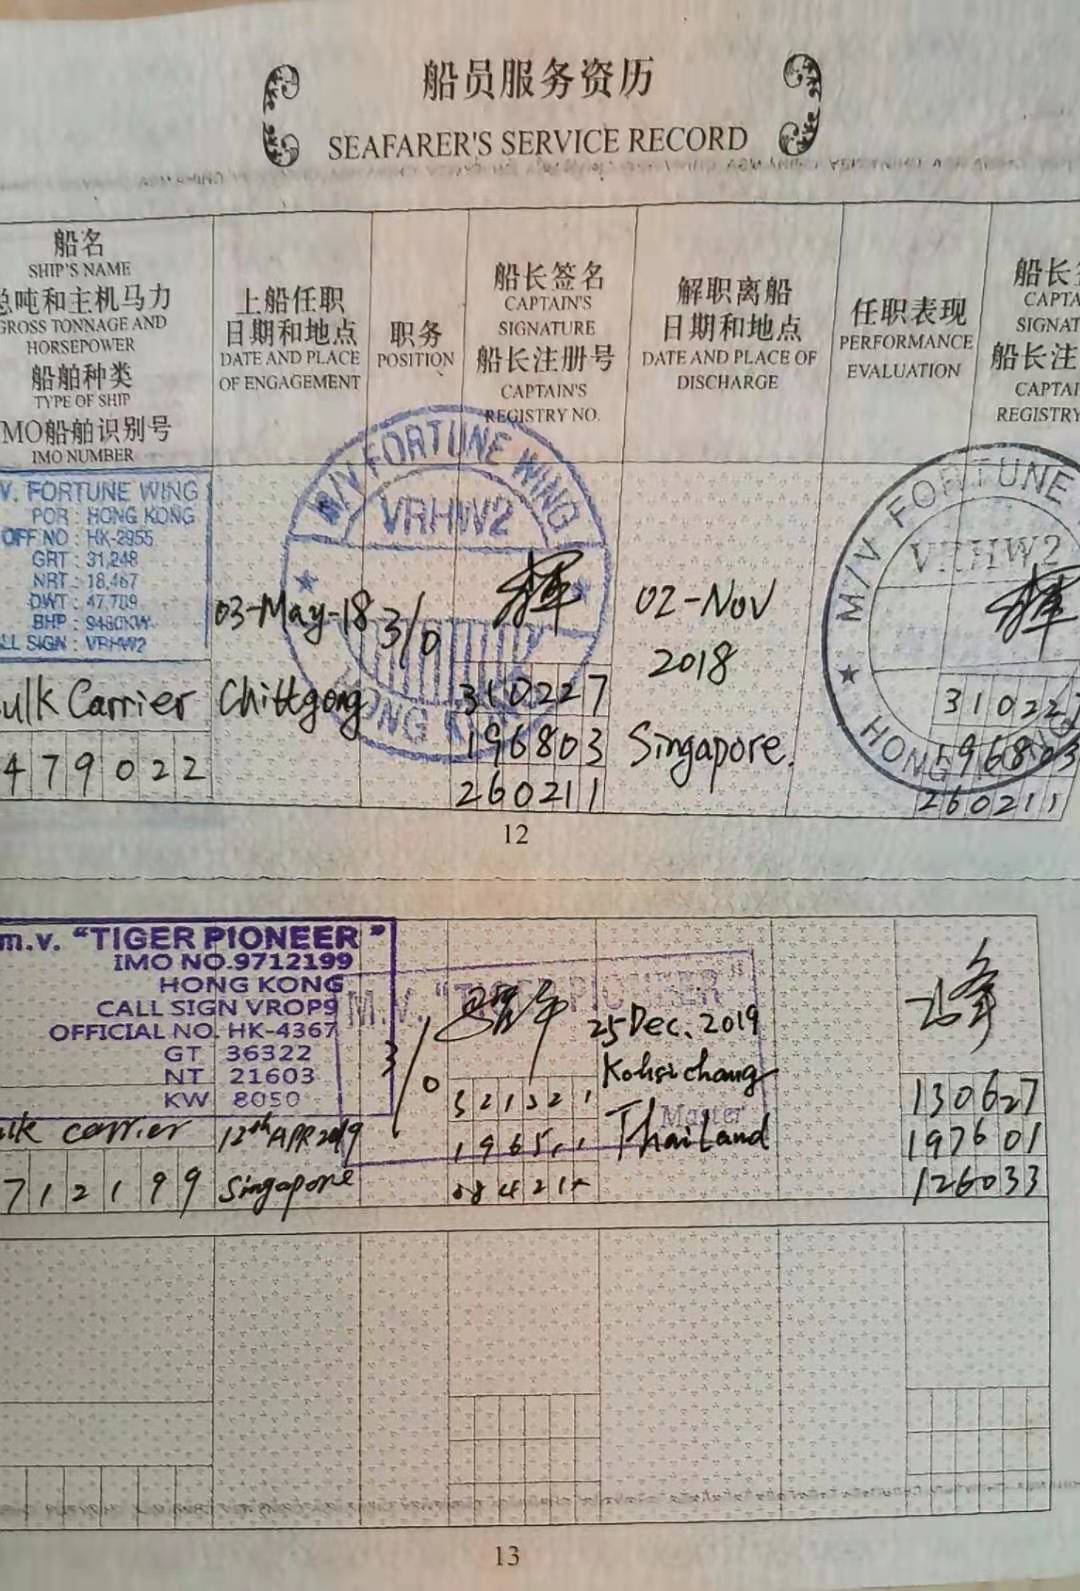 船员服务资历
SEAFARER'S SERVICE RECORD
船名
SHIP'S NAME
总吨和主机马力
GROSS TONNAGE AND
HORSEPOWER
船舶种类
TYPE OF SHIP
IMO船舶识别号
IMO NUMBER
上船任职
日期和地点
DATE AND PLACE
OF ENGAGEMENT
职务
POSITION
船长签名
CAPTAIN'S
SIGNATURE
船长注册号
CAPTAIN'S
REGISTRY NO.
解职离船
日期和地点
DATE AND PLACE OF
DISCHARGE
任职表现
PERFORMANCE
EVALUATION
船长
CAPTA
SIGNAT
船长注
CAPTAI
REGISTRY
V. FORTUNE WING
POR : HONG KONG
OFF NO : HK-2955
GRT : 31,248
NRT : 18,467
DWT : 47,789
BHP : 9480KW
LL SIGN : VRHW2
ulk Carrier
479022
03-May-18
Chittgong
3/0
M/V FORTUNE WING
VRHW2
HONG KONG
310227
196803
260211
02-Nov
2018
Singapore.
M/V FORTUNE
VRHW2
HONG
310227
196803
260211
12
m.v. "TIGER PIONEER"
IMO NO.9712199
HONG KONG
CALL SIGN VROP9
OFFICIAL NO. HK-4367
GT 36322
NT 21603
KW 8050
lk carrier
712199
12th APR 2019
Singapore
3/0
M.V. "TIGER PIONEER"
Master
25 Dec. 2019
Kohsichang
Thailand
130627
197601
126033
13